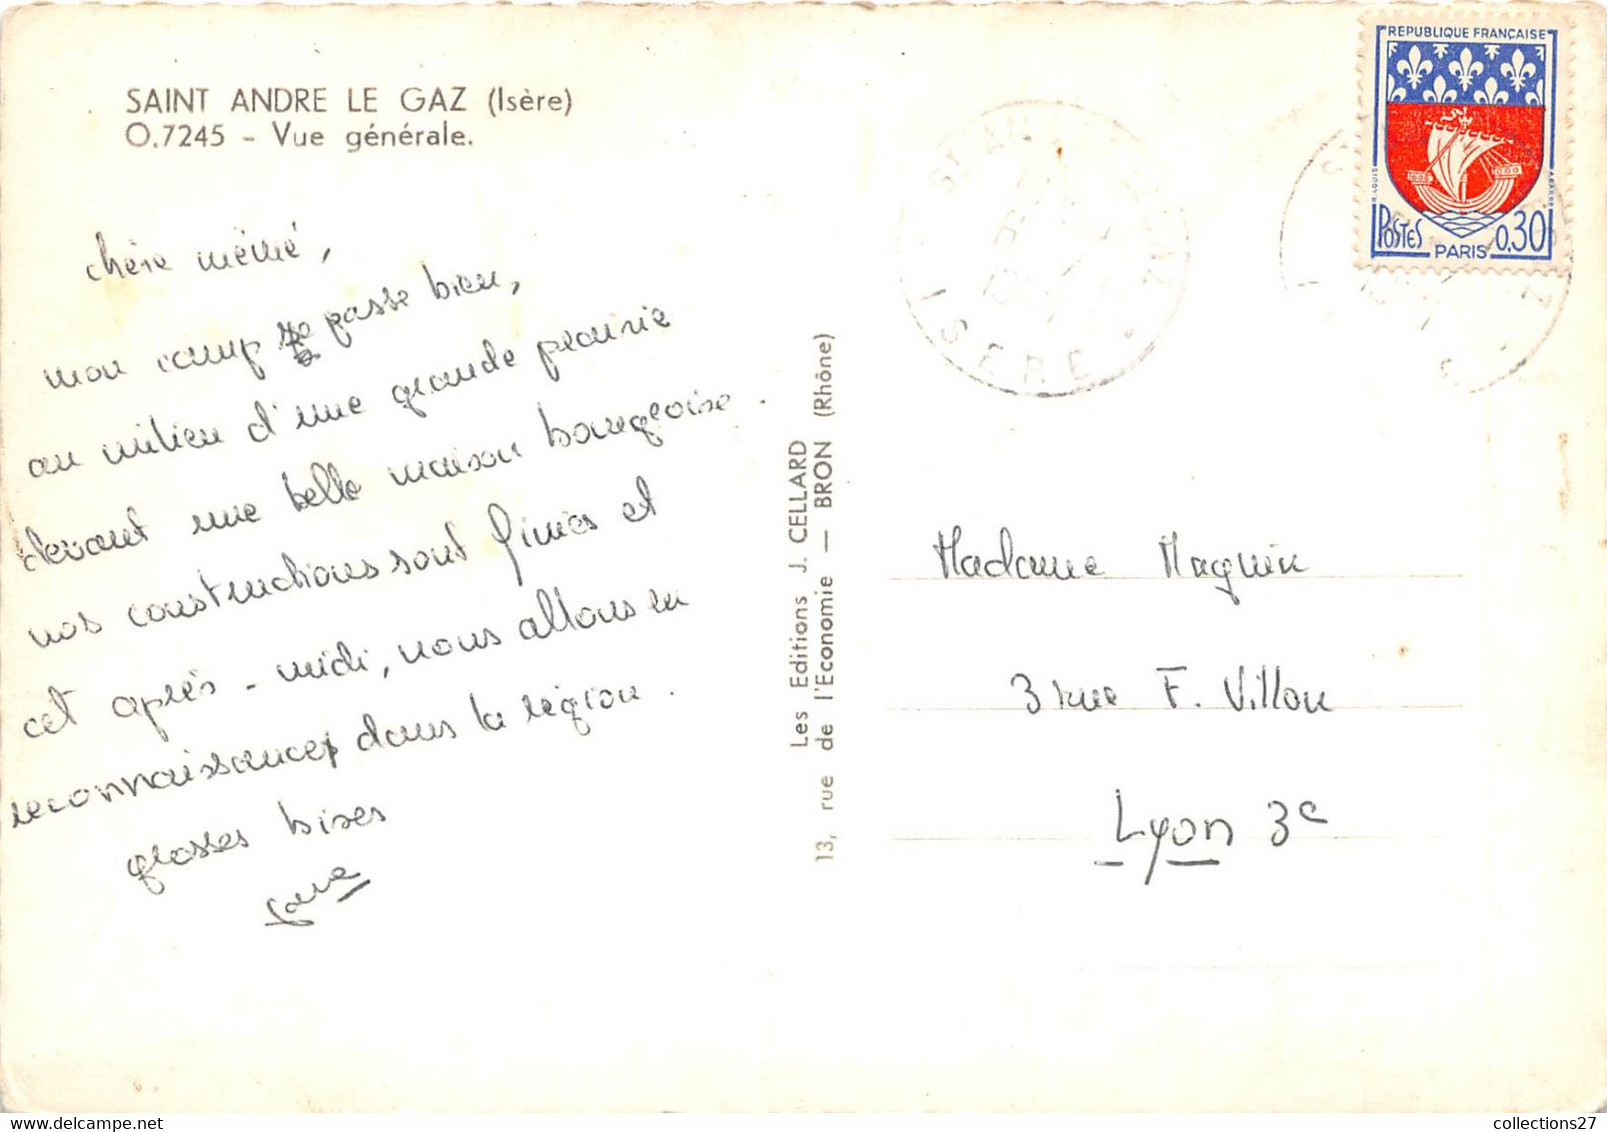 SAINT ANDRE LE GAZ (Isère)
O.7245 - Vue générale.
chère mémé,
mon camp se passe bien,
au milieu d'une grande prairie
devant une belle maison bourgeoise.
nos constructions sont finies et
cet après-midi, nous allons en
reconnaissances dans la région.
grosses bises
Les Editions J. CELLARD
13, rue de l'Economie — BRON (Rhône)
REPUBLIQUE FRANÇAISE
POSTES 0,30
PARIS
ISERE
Madame Magnin
3 rue F. Villon
Lyon 3e
collections27